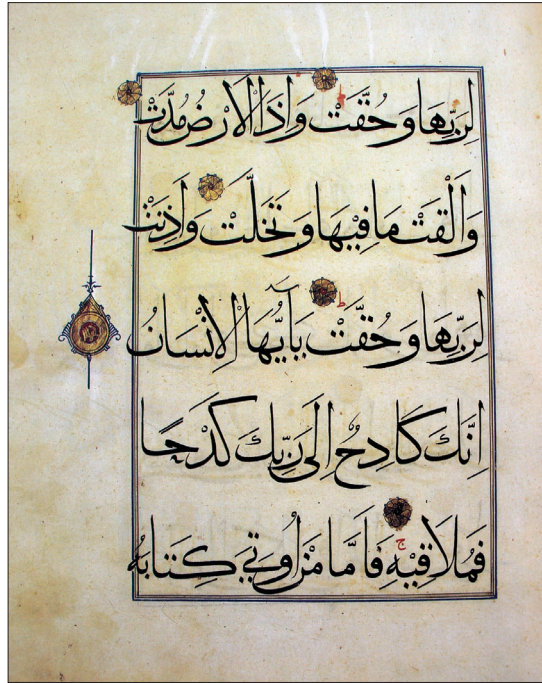 لِرَبِّهَا وَحُقَّتْ وَاِذَا الْاَرْضُ مُدَّتْ
وَاَلْقَتْ مَا فِيْهَا وَتَخَلَّتْ وَاَذِنَتْ
لِرَبِّهَا وَحُقَّتْ ط يَآ اَيُّهَا الْاِنْسَانُ
اِنَّكَ كَادِحٌ اِلَى رَبِّكَ كَدْحًا
فَمُلَاقِيْهِ ج فَاَمَّا مَنْ اُوْتِيَ كِتَابَهُ